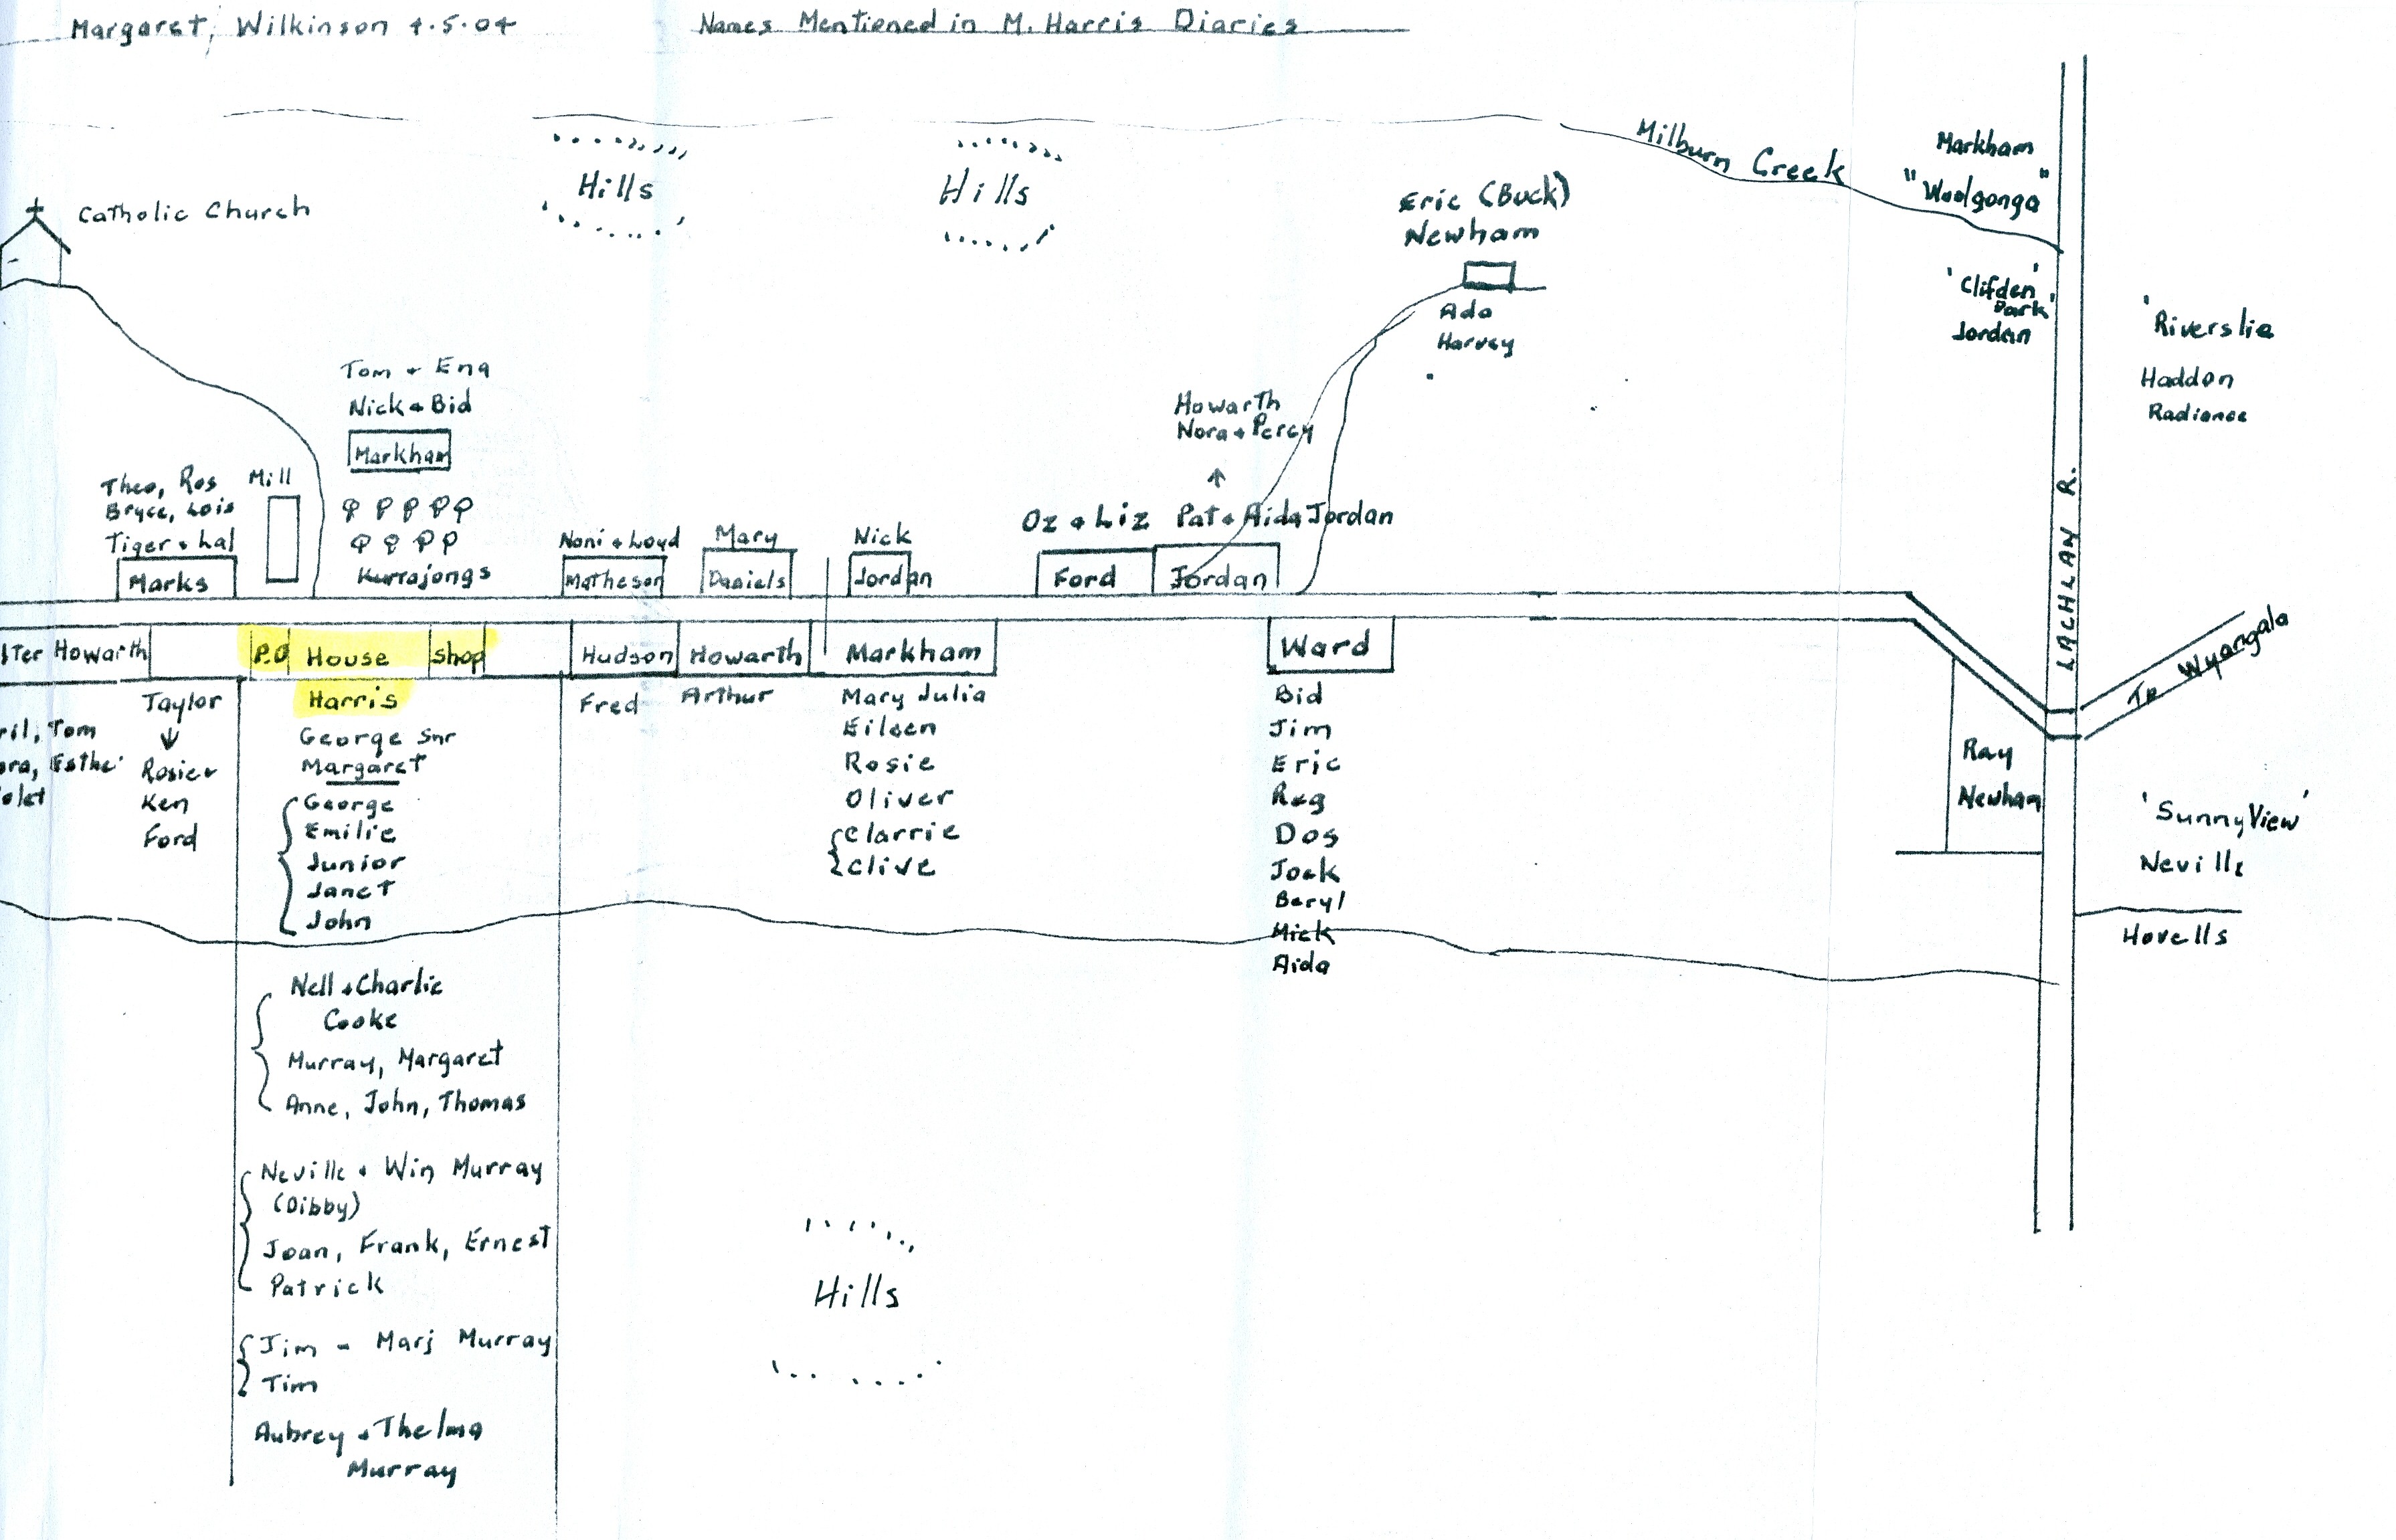 Margaret, Wilkinson 4.5.04
Names Mentioned in M. Harris Diaries
Milburn Creek
Markham
"Woolgonga"
Catholic Church
Hills
Hills
Eric (Buck)
Newham
Ada
Harvey
'Clifden
Park'
Jordan
'Riverslie
Haddon
Radiance
Tom + Ena
Nick + Bid
Markham
Kurrajongs
Theo, Ros
Bryce, Lois
Tiger + Lal
Marks
Mill
Noni + Loyd
Matheson
Mary
Daniels
Nick
Jordan
Howarth
Nora + Percy
Oz + Liz
Ford
Pat + Aida Jordan
Jordan
LACHLAN R.
To Wyangala
lter Howarth
P.O
House
Shop
Hudson
Howarth
Markham
Ward
ril, Tom
ora, Esthe
olet
Taylor
Rosie +
Ken
Ford
Harris
George Snr
Margaret
George
Emilie
Junior
Janet
John
Nell + Charlie
Cooke
Murray, Margaret
Anne, John, Thomas
Neville + Win Murray
(Dibby)
Joan, Frank, Ernest
Patrick
Jim - Marj Murray
Tim
Aubrey + Thelma
Murray
Fred
Arthur
Mary Julia
Eileen
Rosie
Oliver
Clarrie
Clive
Bid
Jim
Eric
Reg
Dos
Jock
Beryl
Mick
Aida
Hills
Ray
Newham
'Sunny View'
Neville
Hovells